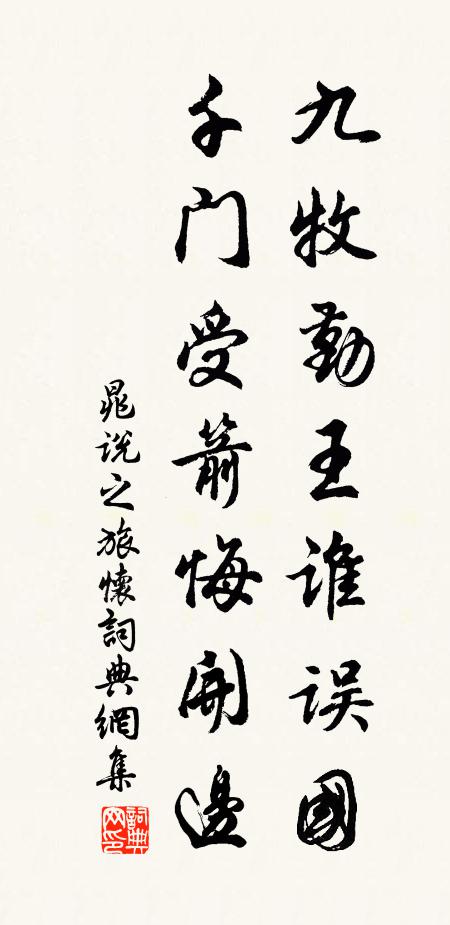 九牧勤王谁误國
千门受箭悔開邊
晁说之旅懷詞典網集
詞典网印